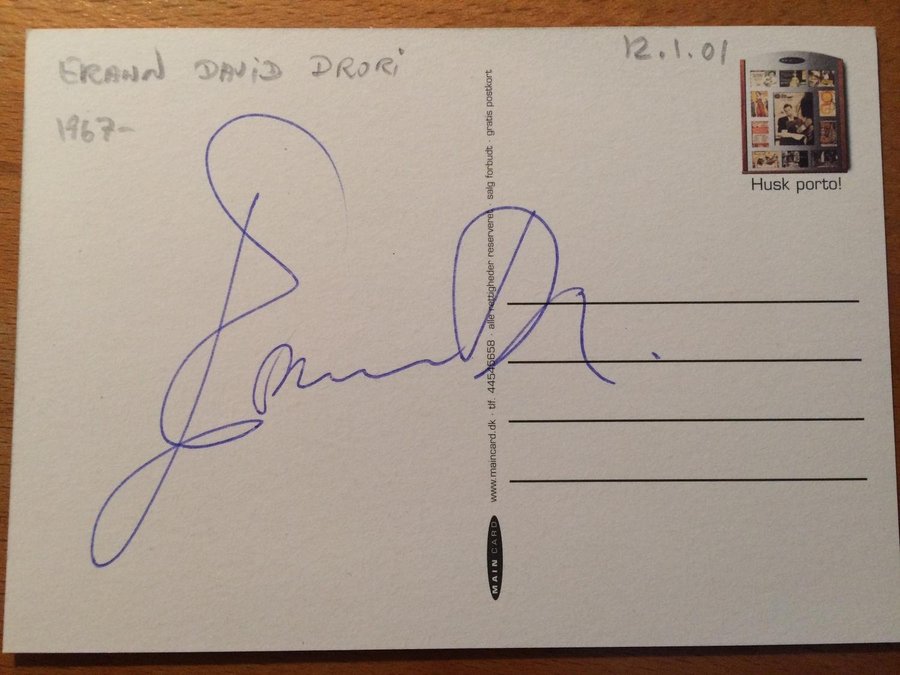 ERANN DAVID DRORI
1967-
12.1.01
Husk porto!
MAIN CARD
www.maincard.dk · tlf. 44546658 · alle rettigheder reserveret · salg forbudt · gratis postkort